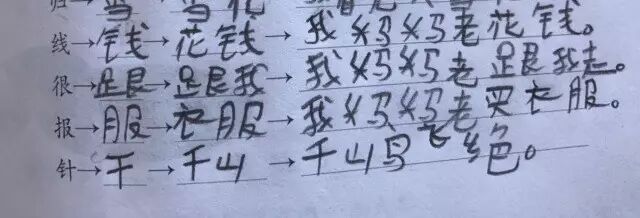 线→钱→花钱→我妈妈老花钱。
很→跟→跟我→我妈妈老跟我走。
报→服→衣服→我妈妈老买衣服。
针→千→千山→千山鸟飞色。